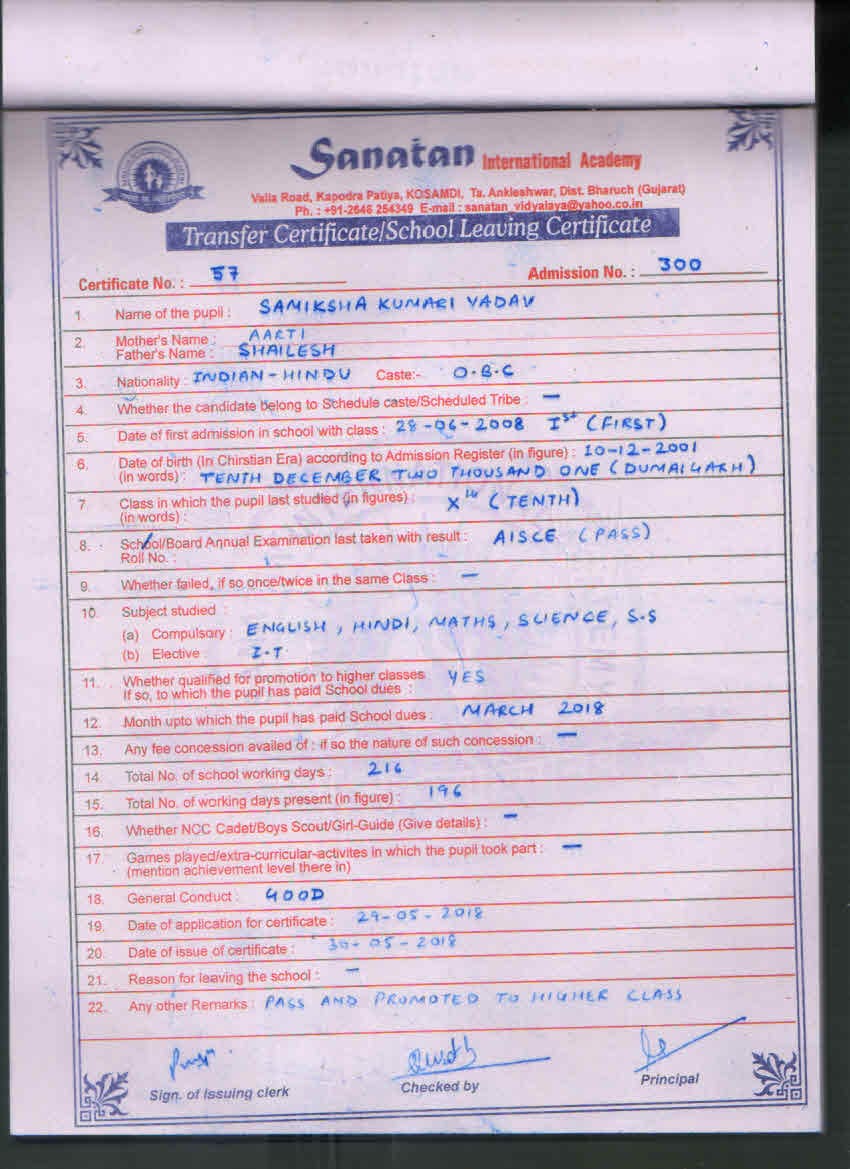 Sanatan International Academy
Valia Road, Kapodra Patiya, KOSAMDI, Ta. Ankleshwar, Dist. Bharuch (Gujarat)
Ph. : +91-2646 254349 E-mail : sanatan_vidyalaya@yahoo.co.in
Transfer Certificate/School Leaving Certificate
Certificate No. : 57 Admission No. : 300
1. Name of the pupil : SAMIKSHA KUMARI YADAV
2. Mother's Name : AARTI
Father's Name : SHAILESH
3. Nationality : INDIAN-HINDU Caste:- O.B.C
4. Whether the candidate belong to Schedule caste/Scheduled Tribe : —
5. Date of first admission in school with class : 28-06-2008 Ist (FIRST)
6. Date of birth (In Chirstian Era) according to Admission Register (in figure) : 10-12-2001
(in words) : TENTH DECEMBER TWO THOUSAND ONE (DUMAIGARH)
7 Class in which the pupil last studied (in figures) : Xth (TENTH)
(in words) :
8. School/Board Annual Examination last taken with result : AISCE (PASS)
Roll No. :
9. Whether failed, if so once/twice in the same Class : —
10. Subject studied :
(a) Compulsory : ENGLISH, HINDI, MATHS, SCIENCE, S.S
(b) Elective : I.T
11. Whether qualified for promotion to higher classes YES
If so, to which the pupil has paid School dues :
12. Month upto which the pupil has paid School dues : MARCH 2018
13. Any fee concession availed of : if so the nature of such concession : —
14. Total No. of school working days : 216
15. Total No. of working days present (in figure) : 196
16. Whether NCC Cadet/Boys Scout/Girl-Guide (Give details) : —
17. Games played/extra-curricular-activites in which the pupil took part : —
(mention achievement level there in)
18. General Conduct : GOOD
19. Date of application for certificate : 29-05-2018
20. Date of issue of certificate : 30-05-2018
21. Reason for leaving the school : —
22. Any other Remarks : PASS AND PROMOTED TO HIGHER CLASS
Sign. of Issuing clerk Checked by Principal